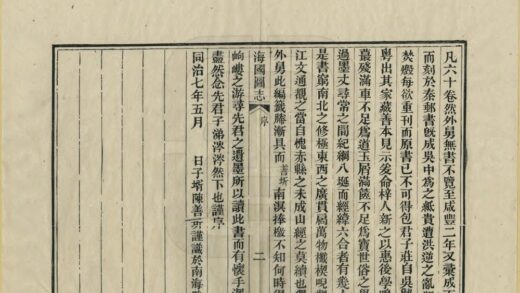 凡六十卷然外舅無書不覽至咸豐二年又彙成
而刻於秦郵書旣成吳中爲之紙貴遭洪逆之亂
焚燬每欲重刊而原書已不可得包君子莊自吳
粤出其家藏善本見示爰命梓人新之以惠後學
蕞殘滿車不足爲道玉屑滿篋不足爲寶世俗之
過墨丈尋常之間紀綱八埏而經緯六合者有幾
是書窮南北之修極東西之廣貫扃萬物檥楔
江文通覩之當自愧赤縣之未成山經之莫續也
外舅此編籤縢漸具而善圻南溟捧檄不知何時得
海國圖志 序 二
岣嶁之游尋先君之遺墨所以讀此書而有懷手澤
盡然念先君子涕涔涔然下也謹序
同治七年五月 日子壻陳善圻謹識於南海